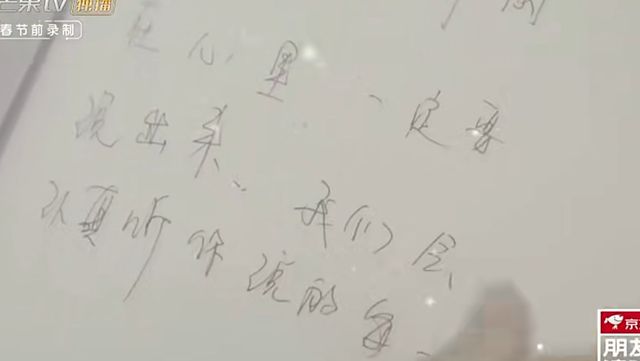 芒果TV 独播
春节前录制
在心里、一定要
说出来、我们会
认真听你说的每
京
朋友